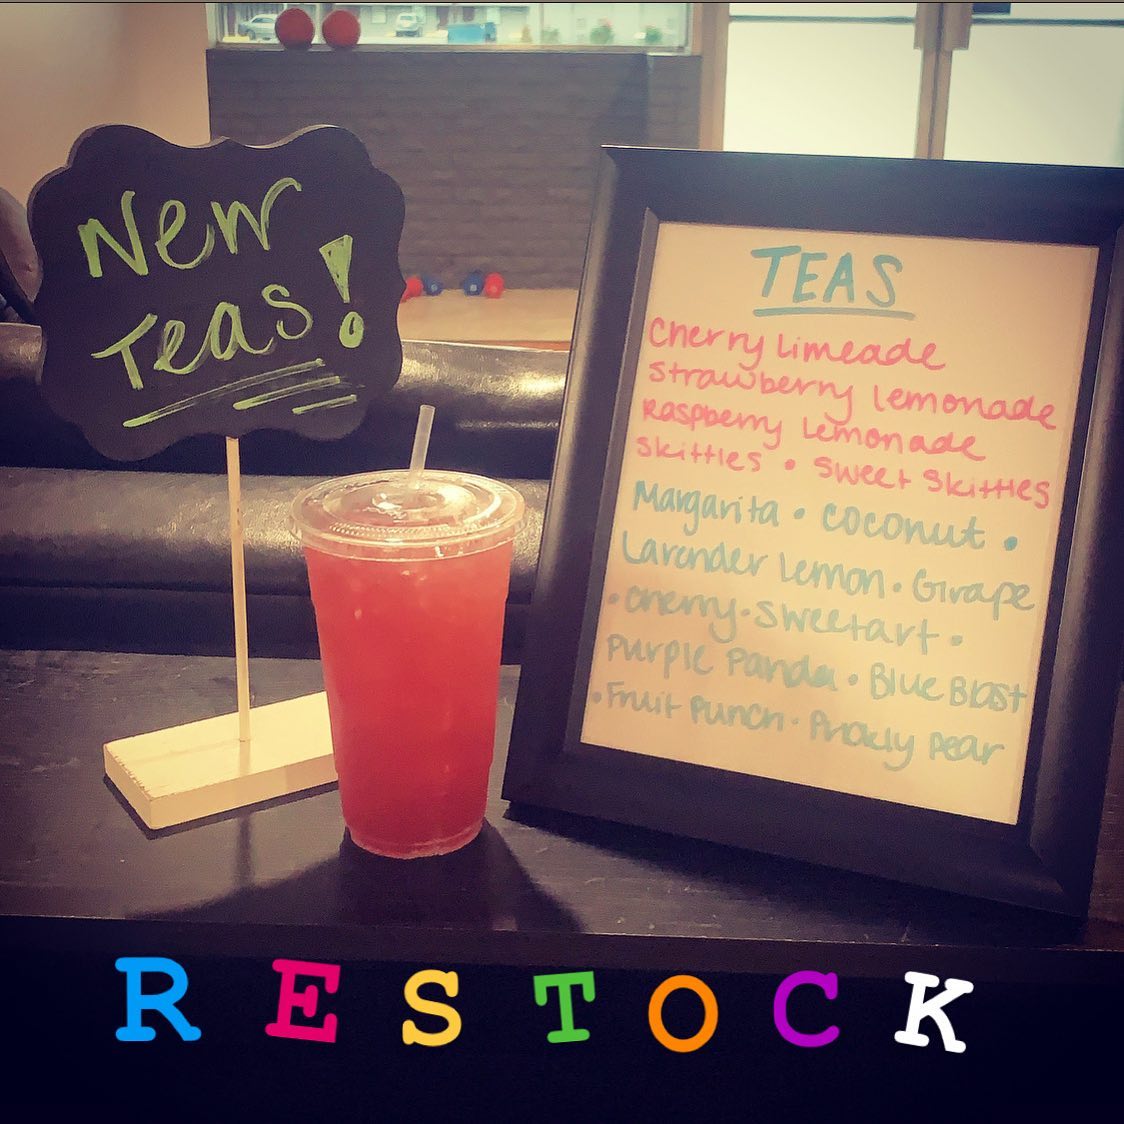 New
Teas!
TEAS
Cherry Limeade
Strawberry Lemonade
Raspberry Lemonade
Skittles • Sweet Skittles
Margarita • Coconut •
Lavender Lemon • Grape
• Cherry • Sweetart •
Purple Panda • Blue Blast
• Fruit Punch • Prickly Pear
RESTOCK